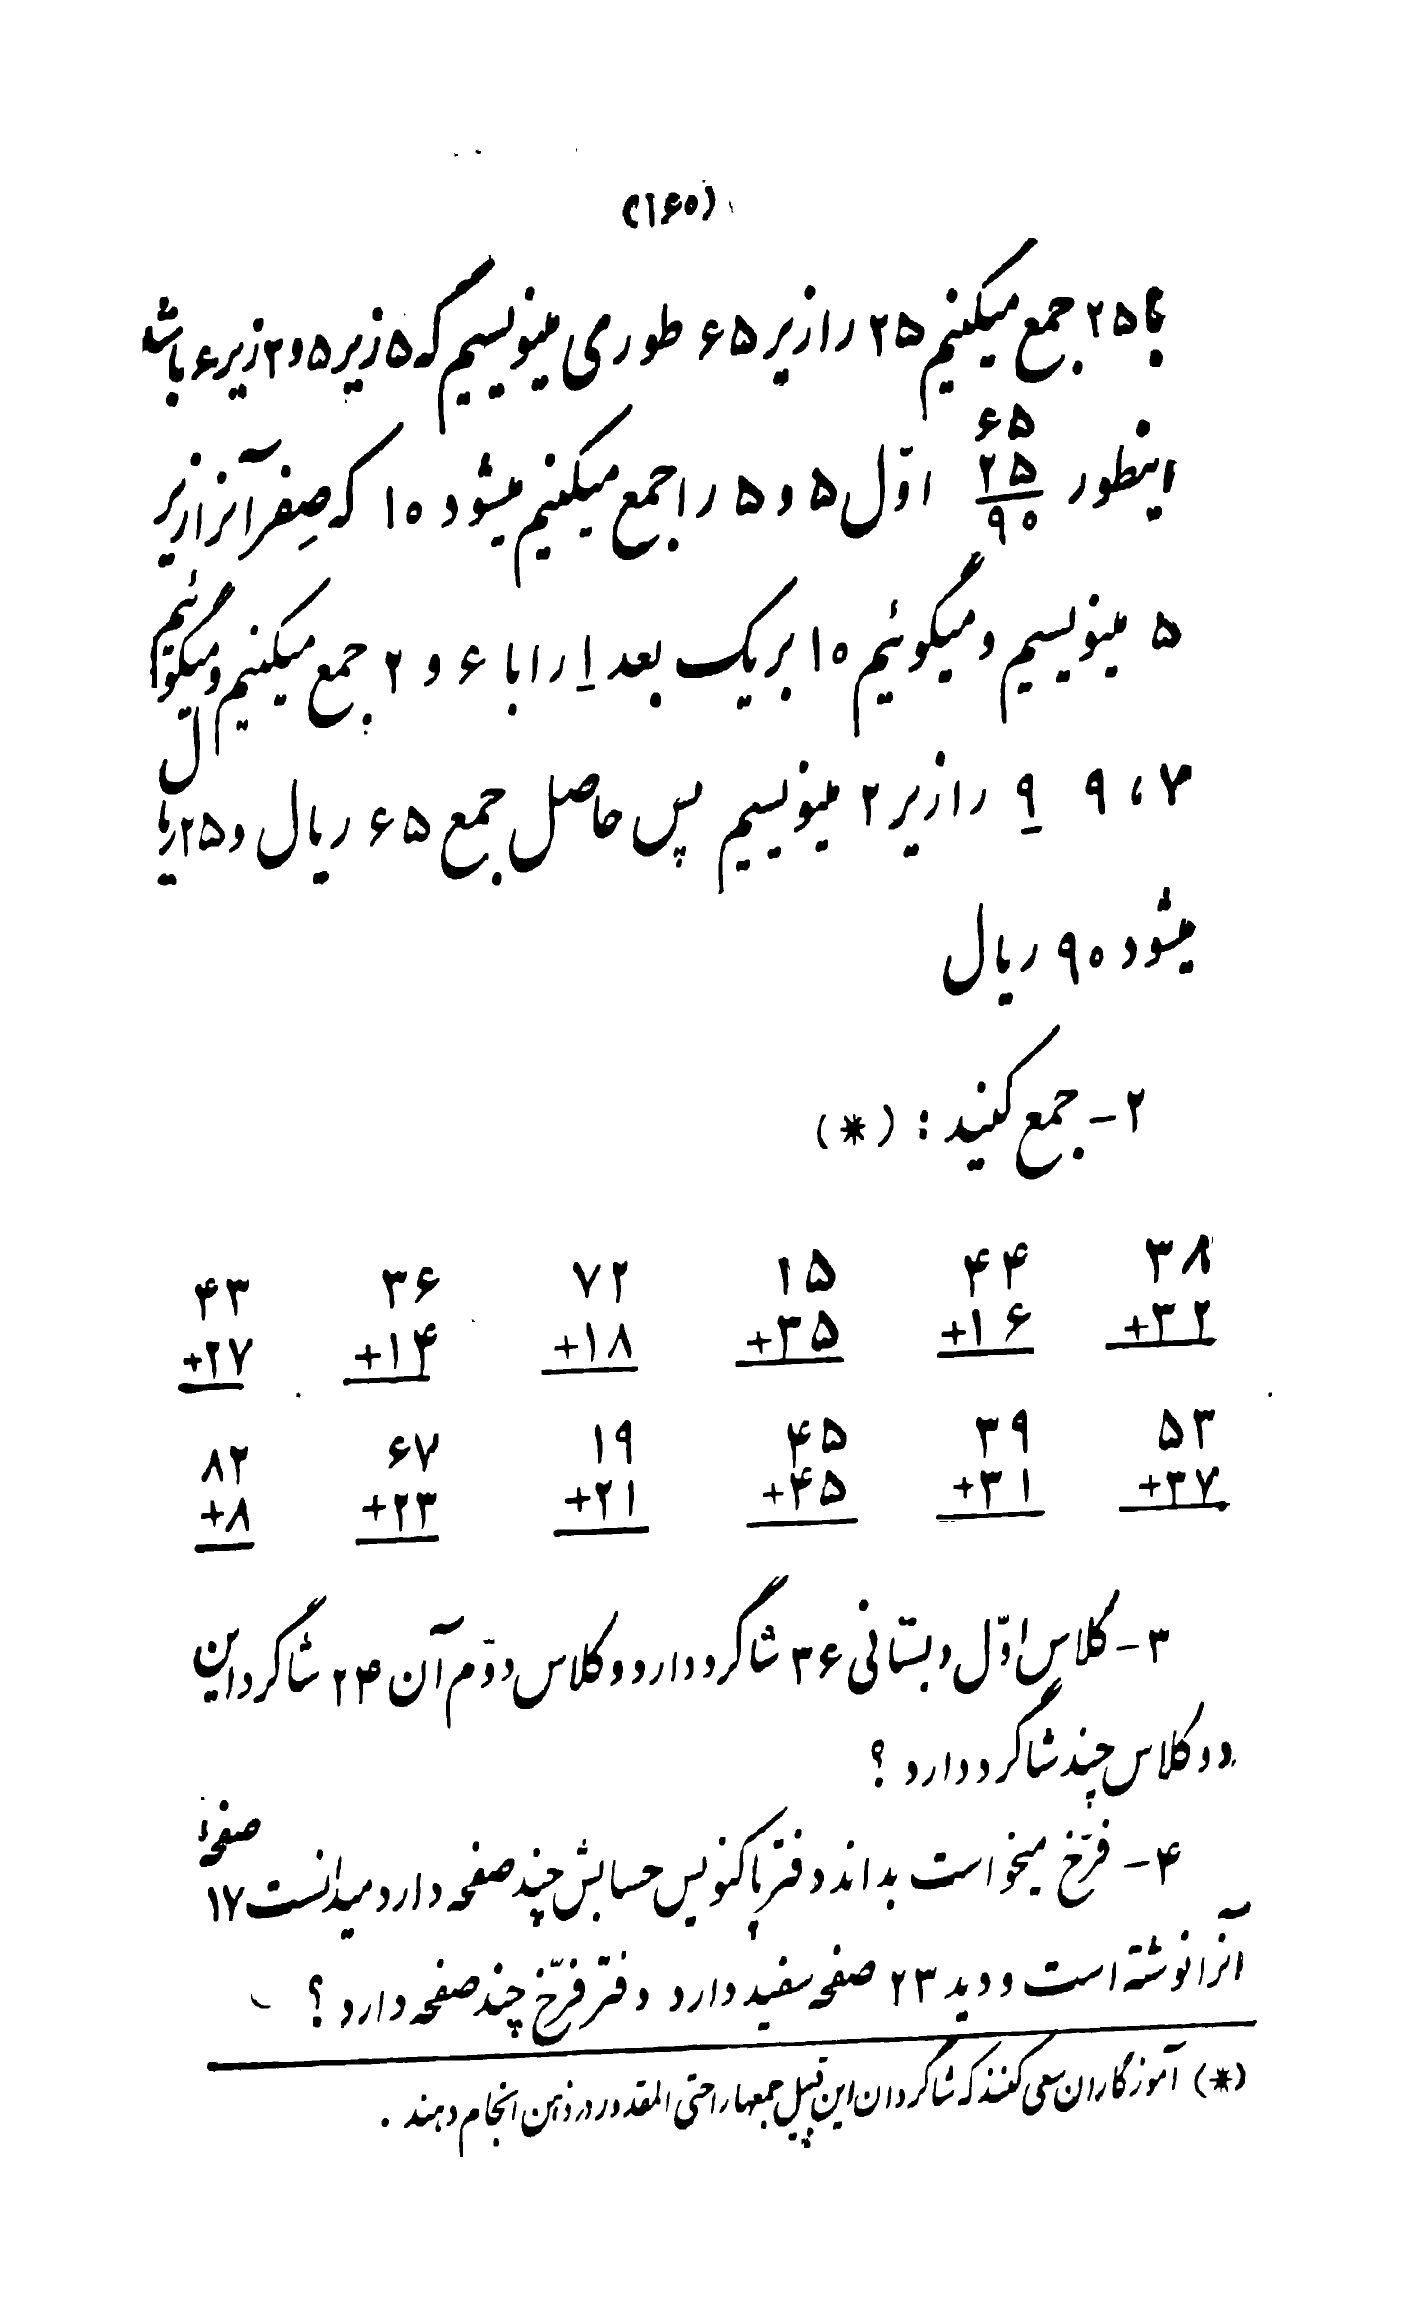 (۱۶۰)
با ۲۵ جمع میکنیم ۲۵ را زیر ۶۵ طوری مینویسیم که ۵ زیر ۵ و ۲ زیر ۶ باشد
۶۵
اینطور ۲۵ اوّل ۵ و ۵ را جمع میکنیم میشود ۱۰ که صِفر آنرا زیر
۹۰
۵ مینویسیم و میگوئیم ۱۰ بر یک بعد ۱ را با ۶ و ۲ جمع میکنیم و میگوئیم
۷ ، ۹ ۹ را زیر ۲ مینویسیم پس حاصل جمع ۶۵ ریال و ۲۵ ریال
میشود ۹۰ ریال
۲- جمع کنید : (*)
۳۸ ۴۴ ۱۵ ۷۲ ۳۶ ۴۳
+۳۲ +۱۶ +۳۵ +۱۸ +۱۴ +۲۷
۵۳ ۳۹ ۴۵ ۱۹ ۶۷ ۸۲
+۳۷ +۳۱ +۴۵ +۲۱ +۲۳ +۸
۳- کلاس اوّل دبستانی ۳۶ شاگرد دارد و کلاس دوّم آن ۲۴ شاگرد این
دو کلاس چند شاگرد دارد ؟
۴- فرّخ میخواست بداند دفتر پاکنویس حسابش چند صفحه دارد میدانست ۱۷ صفحهٔ
آنرا نوشته است و دید ۲۳ صفحه سفید دارد دفتر فرّخ چند صفحه دارد ؟
(*) آموزگاران سعی کنند که شاگردان این قبیل جمعها را حتی المقدور در ذهن انجام دهند .